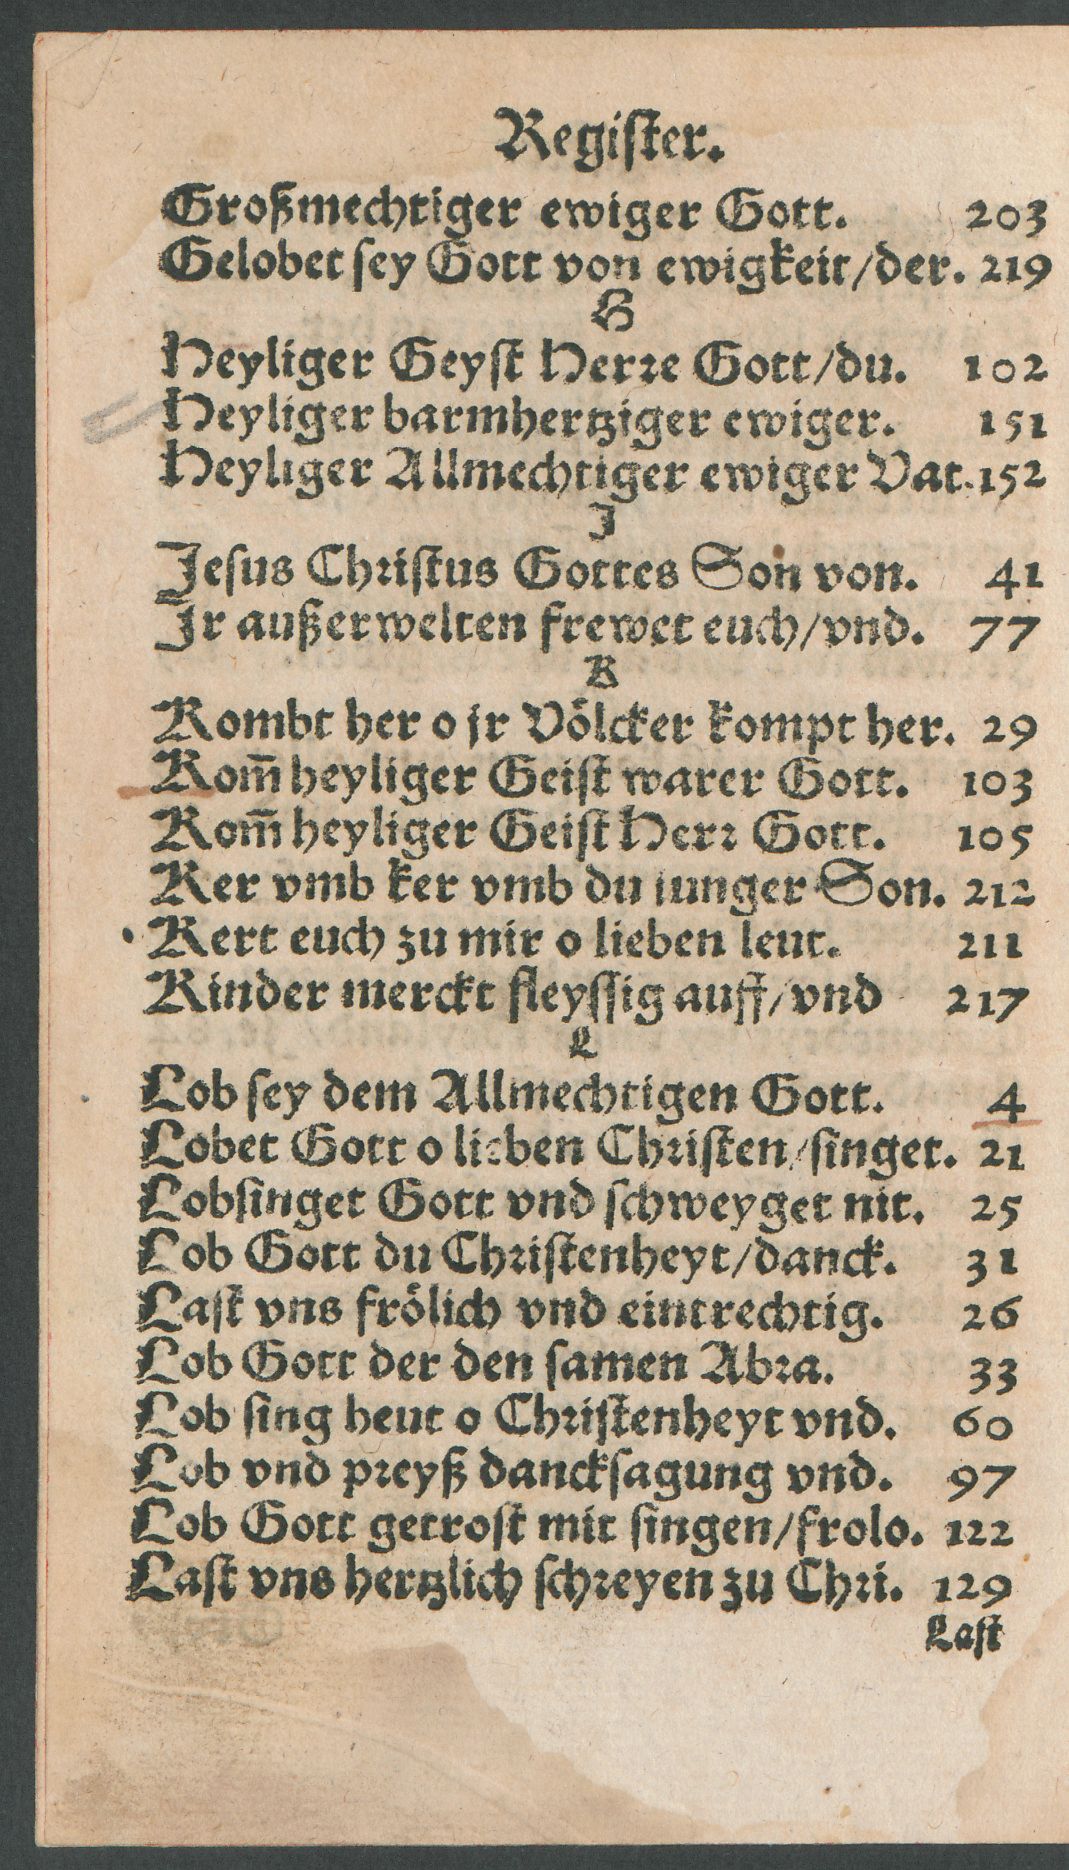 Regiſter.
Großmechtiger ewiger Gott. 203
Gelobet ſey Gott von ewigkeit/der. 219
H
Heyliger Geyſt Herꝛe Gott/du. 102
Heyliger barmhertziger ewiger. 151
Heyliger Allmechtiger ewiger Vat. 152
J
Jeſus Chꝛiſtus Gottes Son von. 41
Jr außerwelten frewet euch/vnd. 77
K
Kombt her o jr Völcker kompt her. 29
Kom̃ heyliger Geiſt warer Gott. 103
Kom̃ heyliger Geiſt Herꝛ Gott. 105
Ker vmb ker vmb du junger Son. 212
Kert euch zu mir o lieben leut. 211
Kinder merckt fleyſſig auff/vnd 217
L
Lob ſey dem Allmechtigen Gott. 4
Lobet Gott o lieben Chꝛiſten/ſinget. 21
Lobſinget Gott vnd ſchweyget nit. 25
Lob Gott du Chꝛiſtenheyt/danck. 31
Laſt vns frölich vnd eintrechtig. 26
Lob Gott der den ſamen Abꝛa. 33
Lob ſing heut o Chꝛiſtenheyt vnd. 60
Lob vnd pꝛeyß danckſagung vnd. 97
Lob Gott getroſt mit ſingen/frolo. 122
Laſt vns hertzlich ſchꝛeyen zu Chꝛi. 129
Laſt